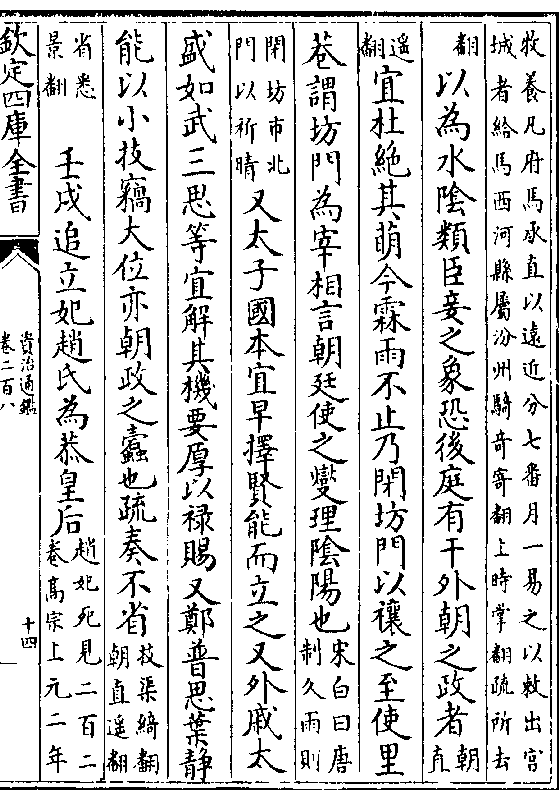 牧養凡府馬承直以遠近分七番月一易之以敕出宮
城者給馬西河縣屬汾州騎奇寄翻上時掌翻疏所去
翻以為水陰類臣妾之象恐後庭有干外朝之政者朝直
遥翻宜杜絶其萌今霖雨不止乃閉坊門以禳之至使里
巷謂坊門為宰相言朝廷使之燮理隂陽也宋白曰唐制久雨則
閉坊市北門以祈晴又太子國本宜早擇賢能而立之又外戚太
盛如武三思等宜解其機要厚以禄賜又鄭普思葉静
能以小技竊大位亦朝政之蠧也疏奏不省技渠綺翻朝直遥翻
省悉景翻壬戌追立妃趙氏為恭皇后趙妃死見二百二卷髙宗上元二年
欽定四庫全書
資治通鑑
卷二百八
十四